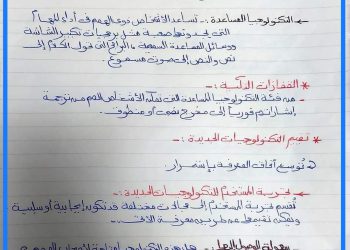 ← التكنولوجيا المساعدة :- تساعد الأشخاص ذوي الهمم في أداء المهام
التي يجدونها صعبة مثل برمجيات تكبير الشاشة
ووسائل المساعدة السمعية و البرامج التي تحول الكلام إلى
نص والنص إلى صوت مسموع
* القفازات الذكية :-
من فئة التكنولوجيا المساعدة التي تمكن الأشخاص الصم من ترجمة
إشاراتهم فورياً إلى مقروء نصي أو منطوق.
* تقييم التكنولوجيات الجديدة :-
توسيع آفاق المعرفة باستمرار.
تجربة المستخدم التكنولوجيات الجديدة :-
تقسم تجربة المستخدم إلى فئات مختلفة قد تكون إيجابية أو سلبية
ويمكن تقييمها عن طريق معرفة